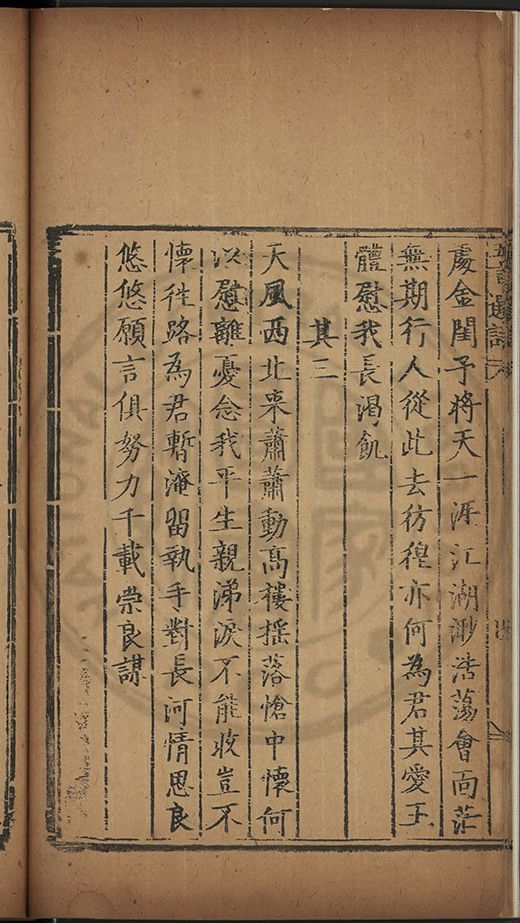 處金閨予將天一涯江湖渺浩蕩會面茫
無期行人從此去彷徨亦何為君其愛玉
體慰我長渴飢
其三
天風西北来蕭蕭動高樓揺落愴中懷何
以慰離憂念我平生親涕淚不能收豈不
懷徃路為君暫淹留執手對長河情思良
悠悠願言俱努力千載崇良謀